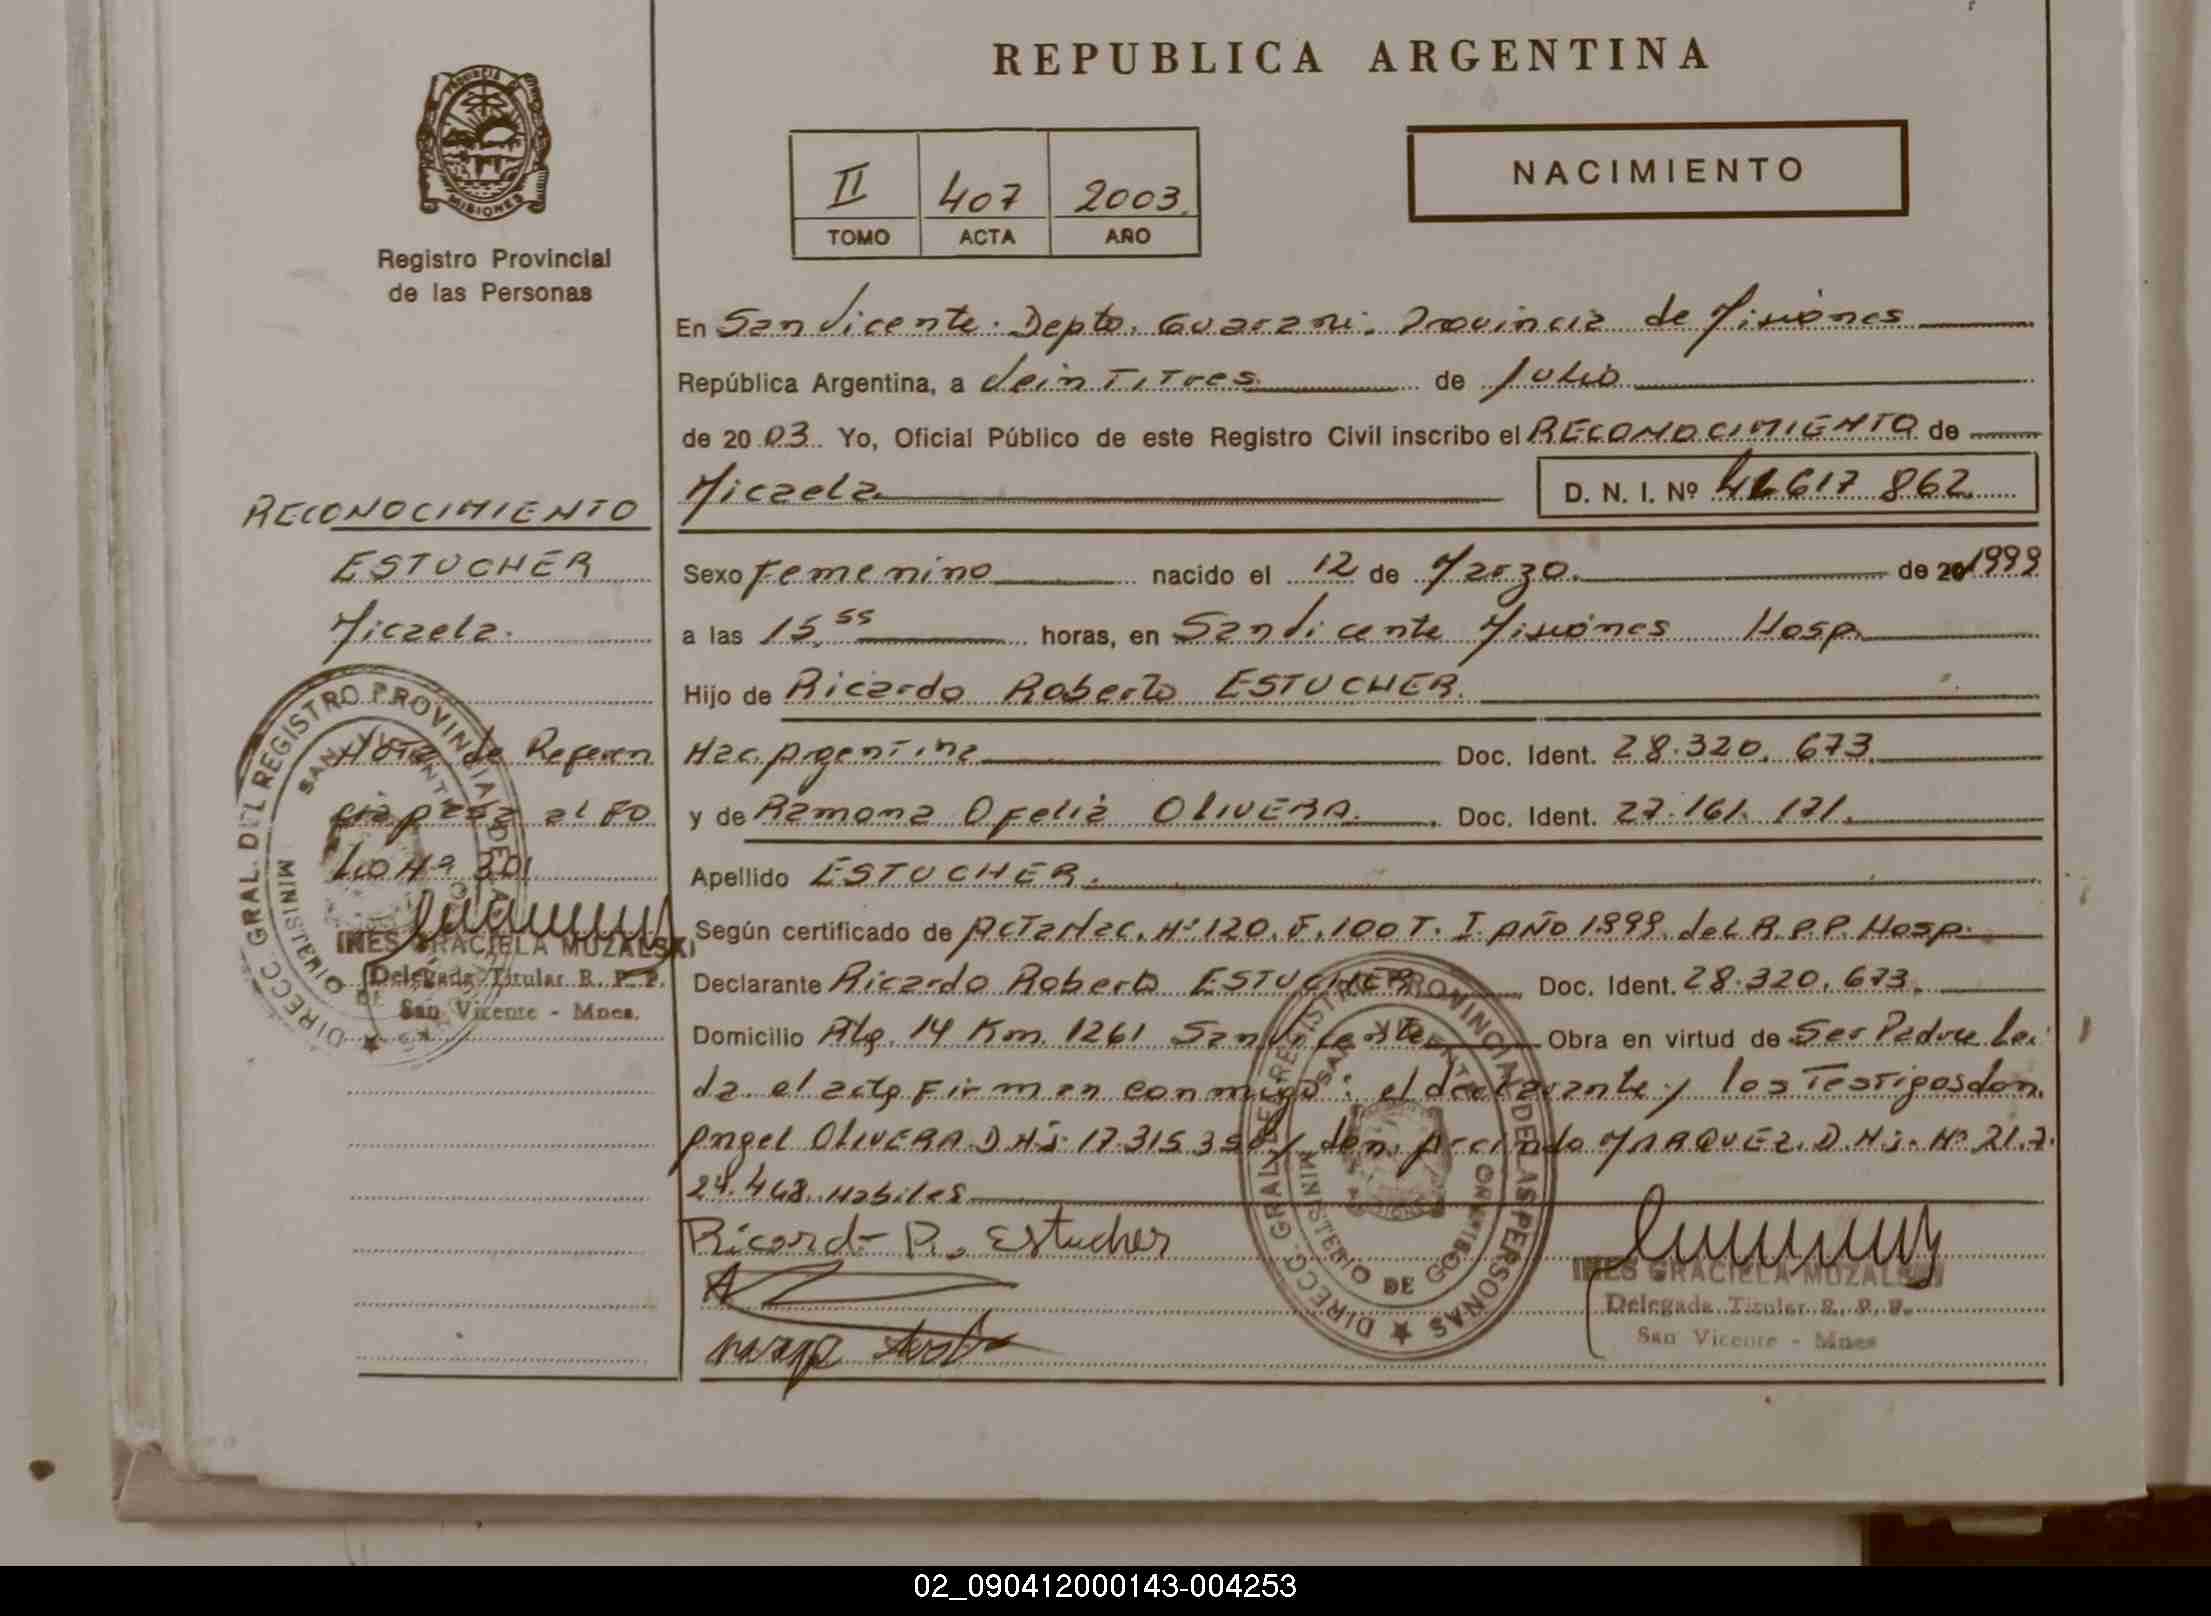 REPUBLICA ARGENTINA
PROVINCIA DE
MISIONES
Registro Provincial
de las Personas
II 407 2003
TOMO ACTA AÑO
NACIMIENTO
En San Vicente. Depto. Guarani. Provincia de Misiones
República Argentina, a Veintitres de Julio
de 2003 Yo, Oficial Público de este Registro Civil inscribo el RECONOCIMIENTO de
Micaela D. N. I. Nº 617 862
Sexo Femenino nacido el 12 de Marzo. de 20 1999
a las 15,55 horas, en San Vicente Misiones Hosp.
Hijo de Ricardo Roberto ESTUCHER.
Nac. Argentina Doc. Ident. 28.320.673.
y de Ramona Ofelia OLIVERA. Doc. Ident. 27.161.171.
Apellido ESTUCHER.
Según certificado de Acta Nac. Nº 120. F. 100 T. I. AÑO 1999. del R.P.P. Hosp.
Declarante Ricardo Roberto ESTUCHER Doc. Ident. 28.320.673.
Domicilio Km. 1261 San Vicente Obra en virtud de Ser Padre Lei
da el acta firman conmigo: el declarante y los Testigos don
Angel OLIVERA D.N.i. 17.315.350 y don MARQUEZ. D.N.i. Nº 21.7
24.468. Habiles
Ricardo R. Estucher
INES GRACIELA MUZALSKI
Delegada Titular R. P. P.
San Vicente - Mnes
DIRECC. GRAL. DEL REGISTRO PROVINCIAL DE LAS PERSONAS
SAN VICENTE
MINISTERIO DE GOBIERNO
RECONOCIMIENTO
ESTUCHER
Micaela.
Nota de Referen
cia pasa al Fo
lio Nº 301
INES GRACIELA MUZALSKI
Delegada Titular R. P. P.
San Vicente - Mnes.
DIRECC. GRAL. DEL REGISTRO PROVINCIAL DE LAS
SAN VICENTE
MINISTERIO DE
02_090412000143-004253